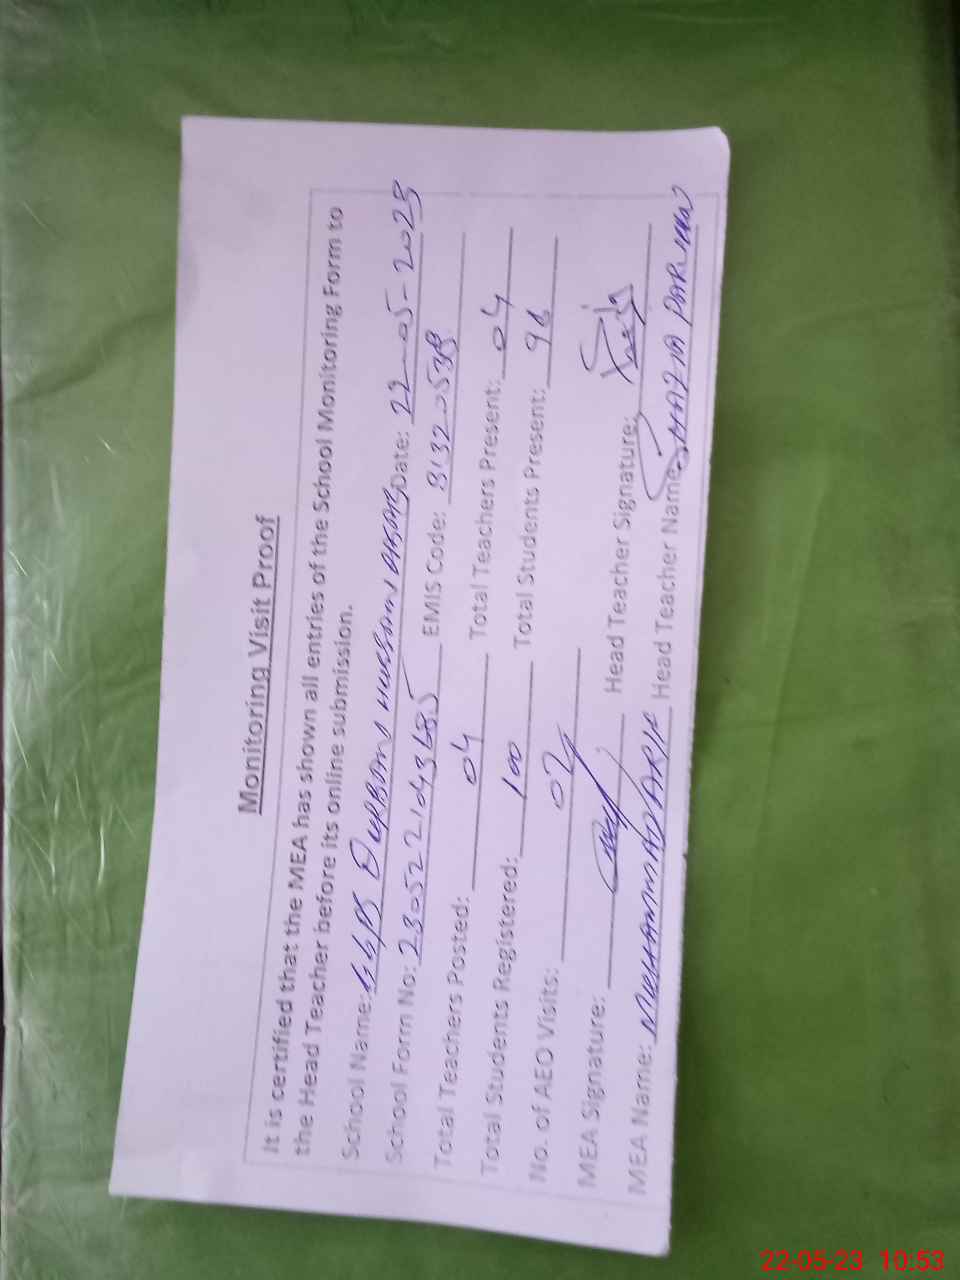 Monitoring Visit Proof
It is certified that the MEA has shown all entries of the School Monitoring Form to
the Head Teacher before its online submission.
School Name: GGPS Date: 22-05-2023
School Form No: EMIS Code:
Total Teachers Posted: 04 Total Teachers Present: 04
Total Students Registered: 100 Total Students Present: 96
No. of AEO Visits: 02
MEA Signature: Head Teacher Signature:
MEA Name: MUHAMMAD Head Teacher Name: SHAZIA PARVEEN
22-05-23 10:53